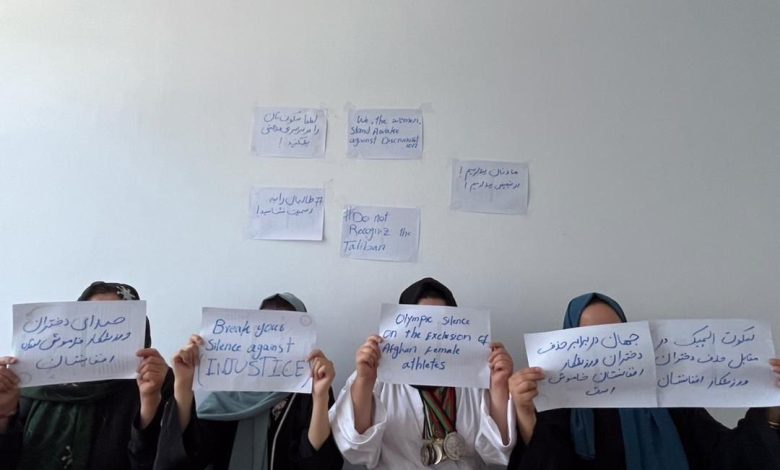 لطفا سکوت تان
را در برابر بی عدالتی
بشکنید!
We, the women,
Stand Awake
against Discriminat
ion
ما دنبال بیداریم!
در تبعیض بیداریم!
# طالبان را به
رسمیت نشناسید!
#Do not
Recogniz the
Taliban
صدای دختران
ورزشکار فراموش شده
افغانستان
Break your
Silence against
(INJUSTICE)
Olympic Silence
on the Exclesion of
Afghan Female
athletes
جهان در برابر حذف
دختران ورزشکار
افغانستان خاموش
است
سکوت المپیک در
مقابل حذف دختران
ورزشکار افغانستان